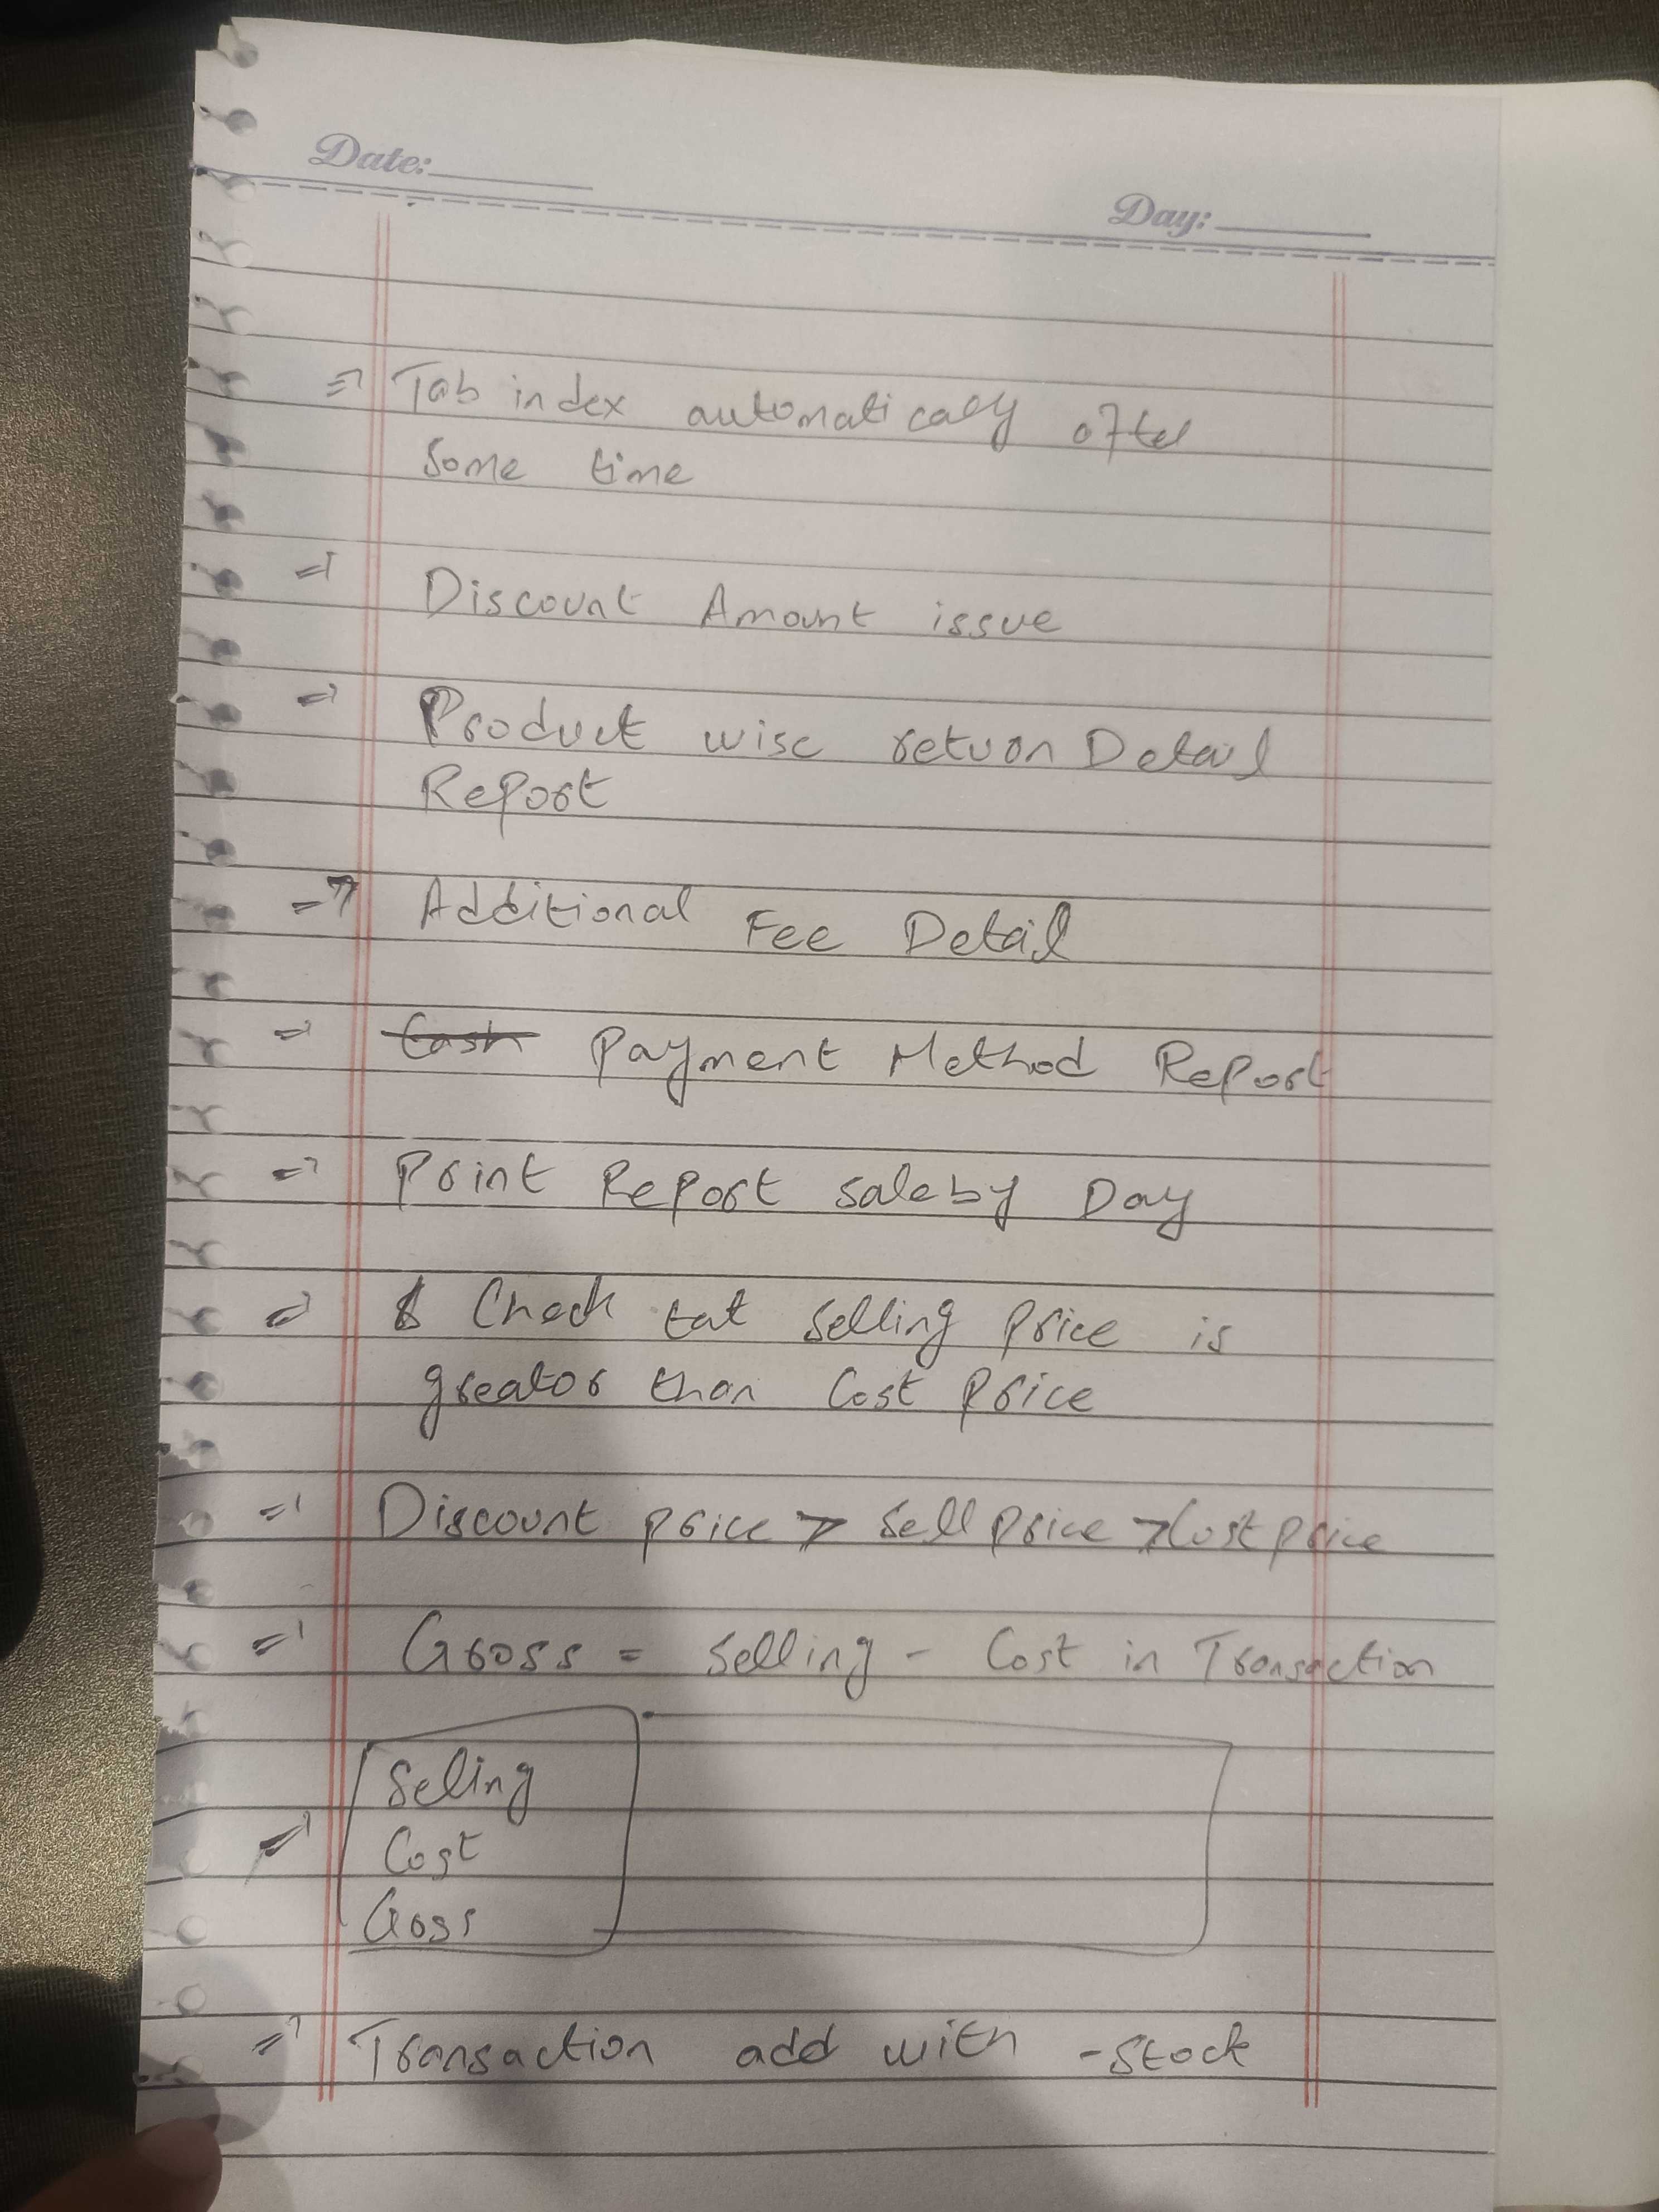 Date:
Day:
=> Tab index automatically after
Some time
=> Discount Amount issue
=> Product wise return Detail
Report
=> Additional Fee Detail
=> Cash Payment Method Report
=> Print Report sale by Day
=> Check tat selling price is
greator than Cost price
=> Discount price > Sell price > Cost price
=> Gross = Selling - Cost in Transaction
Seling
=> Cost
Goss
=> Transaction add with -Stock